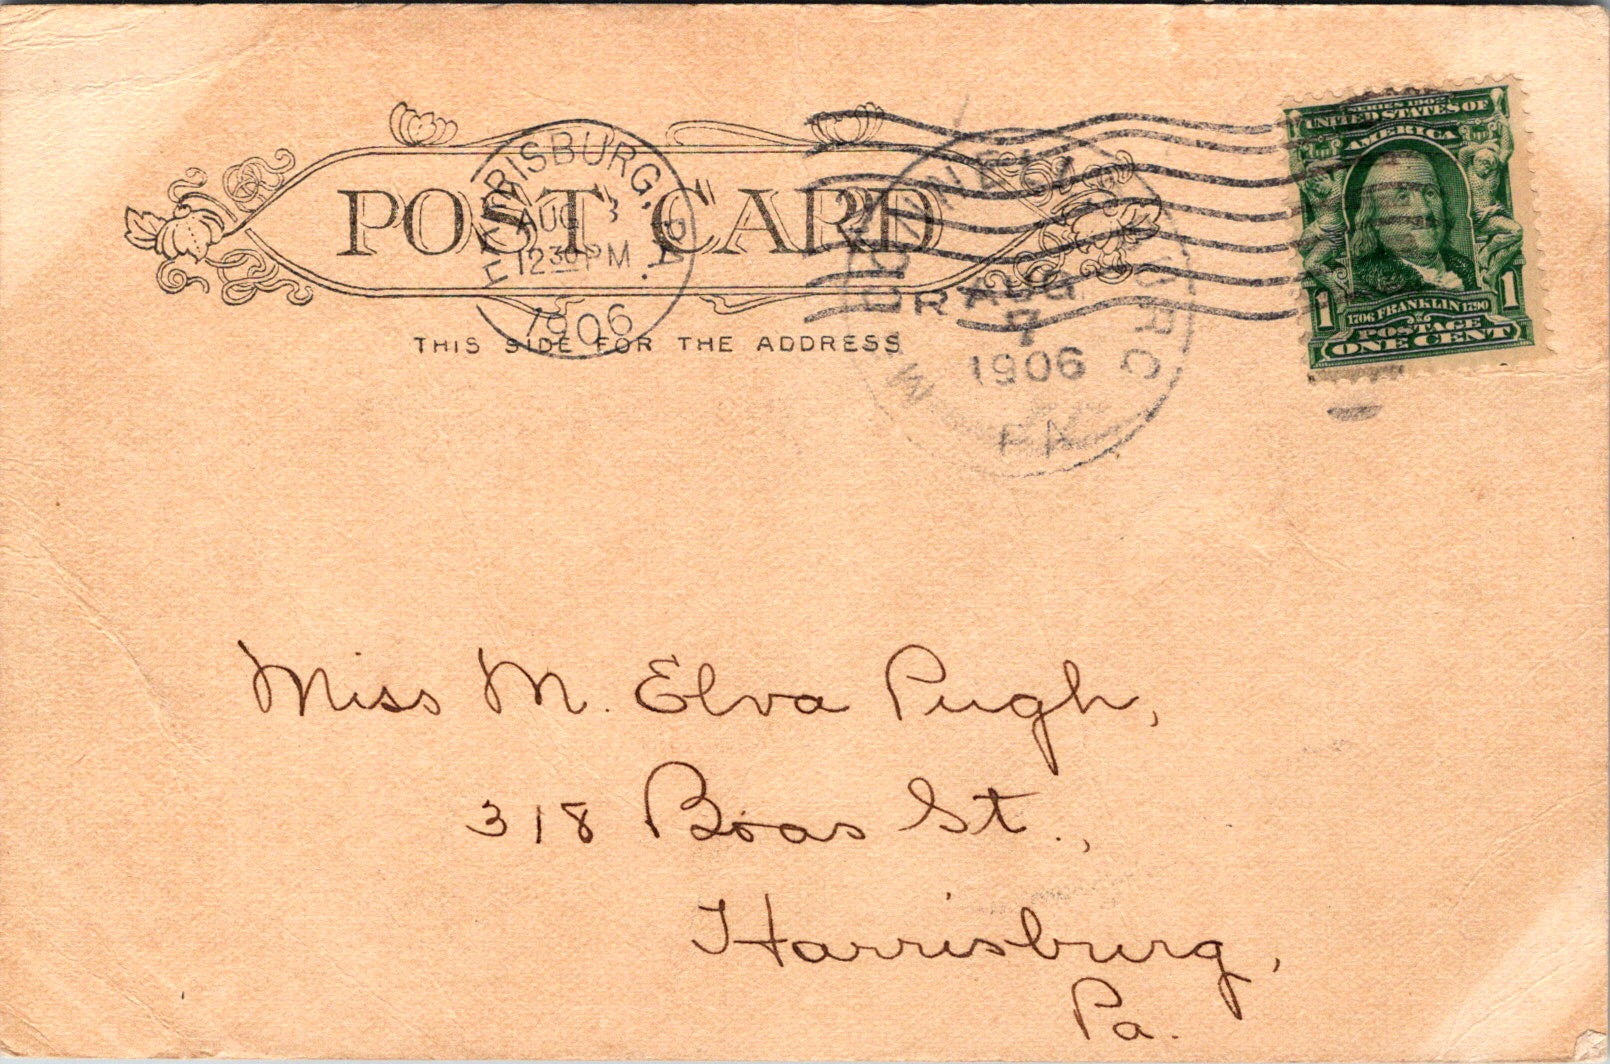 POST CARD
THIS SIDE FOR THE ADDRESS
HARRISBURG, PA.
AUG 3
12 30 PM
1906
AUG
7
1906
PA
SERIES 1902
UNITED STATES OF
AMERICA
1706 FRANKLIN 1790
POSTAGE
1 1
ONE CENT
Miss M. Elva Pugh,
318 Boas St.,
Harrisburg,
Pa.